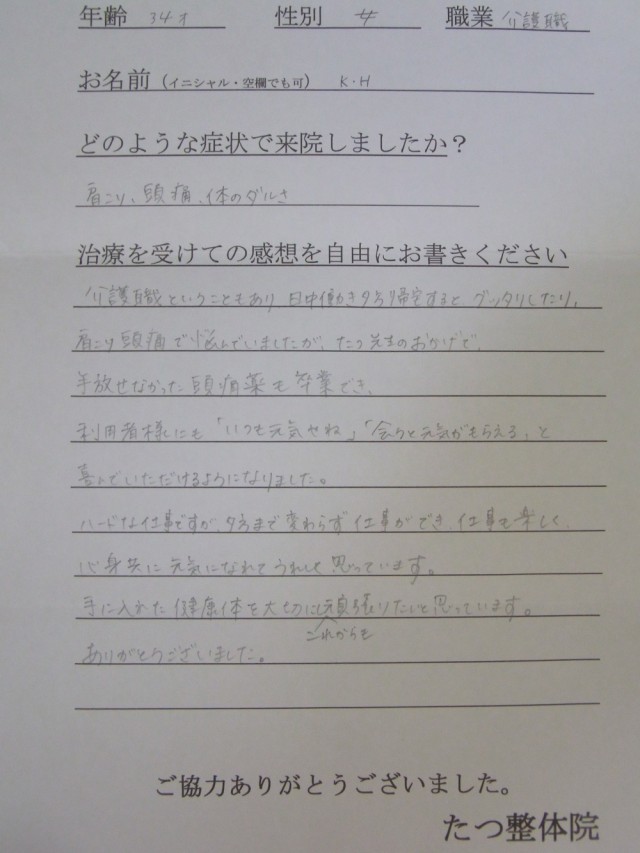 年齢 34才 性別 女 職業 介護職
お名前（イニシャル・空欄でも可） K・H
どのような症状で来院しましたか？
肩こり、頭痛、体のダルさ
治療を受けての感想を自由にお書きください
介護職ということもあり 日中働き夕方帰宅すると、グッタリしたり、
肩こり頭痛で悩んでいましたが、たつ先生のおかげで、
手放せなかった頭痛薬も卒業でき、
利用者様にも「いつも元気やね」「会うと元気がもらえる」と
喜んでいただけるようになりました。
ハードな仕事ですが、夕方まで変わらず仕事ができ、仕事も楽しく、
心身共に元気になれてうれしく思っています。
手に入れた健康体を大切に頑張りたいと思っています。
これからも
ありがとうございました。
ご協力ありがとうございました。
たつ整体院